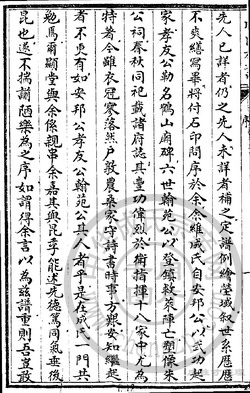 先人已詳者仍之先人未詳者補之定譜例繪塋域叙世系歷歷
不爽繕寫畢將付石印問序於余余維戚氏自安邦公以武功起
家孝友公勒名鴨山廟碑六世翰苑公以登鎮救荒陣亡塑像朱
公祠春秋同祀載諸府誌其豐功偉烈於衛指揮十八家中尤為
特著今雖衣冠寥落然戶敦農桑家守詩書時事方艱安知繼起
者不更有如安邦公孝友公翰苑公其人者乎是在戚氏一門共
勉焉爾顯堂與余係親串余嘉其與昆季能述先德篤同氣垂後
昆也遂不揣譾陋樂為之序如謂得余言以為茲譜重則吾豈敢